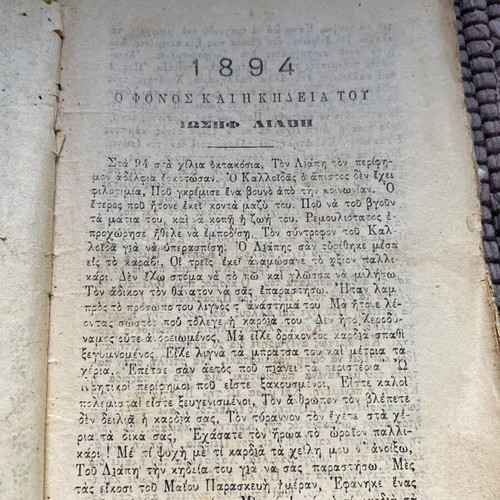 1894
Ο ΦΟΝΟΣ ΚΑΙ Η ΚΗΔΕΙΑ ΤΟΥ
ΙΩΣΗΦ ΛΙΑΠΗ
Στὰ 94 στὰ χίλια ὀκτακόσια, Τὸν Λιάπη τὸν περίφη-
μον ἀδέλφια ἐσκοτώσαν. Ὁ Καλλοϊδᾶς ὁ ἄπιστος δὲν ἔχει
φιλοτιμία, Ποῦ γκρέμισε ἕνα βουνὸ ἀπὸ τὴν κοινωνίαν. Ὁ
ἕτερος ποῦ ἤτονε ἐκεῖ κοντὰ μαζύ του. Ποῦ νὰ τοῦ βγοῦν
τὰ μάτια του, καὶ νὰ κοπῇ ἡ ζωή του. Ρεμουλιότατος ἐ-
προχώρησε ἤθελε νὰ ἐμποδίσῃ, Τὸν σύντροφον τοῦ Καλ-
λοϊδᾶ γιὰ νὰ ὑπερασπίσῃ. Ὁ Λιάπης σὰν εὑρίθηκε μέσα
εἰς τὸ καράβι, Οἱ τρεῖς ἐκεῖ ἀνταμώσανε τὸ ἄξιον παλλι-
κάρι. Δὲν ἔχω στόμα νὰ τὸ πῶ καὶ γλῶσσα νὰ μιλήσω
Τὸν ἄδικον τὸν θάνατον νὰ σᾶς ἐπαραστήσω. Ἤταν λαμ
πρὸς τὸ πρόσωπο του λιγνὸς τ' ἀνάστημά του Μὰ ἤτοιε λέ-
οντας σωστὸς ποῦ τὄλεγε ἡ καρδιά του Δὲν ἤτο Χεροδύ-
ναμος οὔτε ἀνδρειωμένος, Μὰ εἶχε δράκοντος καρδιὰ σπαθὶ
ξεγυμνομένος. Εἶχε λιγνὰ τὰ μπράτσα του καὶ μέτρια τὰ
χέρια, Ἔπεφτε σὰν ἀετὸς ποῦ πιάνει τὰ περιστέρια Ὦ
Κρητικοὶ περίφημοι ποῦ εἶστε ξακουσμένοι, Εἶστε καλοὶ
πολεμισταὶ εἶστε ξευγενισμένοι, Τὸν ἄνθρωπον τὸν βλέπετε
δὲν δειλιᾷ ἡ καρδιά σας, Τὸν τύραννον τὸν ἔχετε στὰ χέ-
ρια τὰ δικά σας, Ἐχάσατε τὸν ἥρωα τὸ ὡραῖον παλλι-
κάρι! Μὲ τί ψυχὴ μὲ τί καρδιὰ τὰ χείλη μου ν' ἀνοίξω,
Τοῦ Λιάπη τὴν κηδεία του γιὰ νὰ σᾶς παραστήσω. Μὲς
τὰς εἴκοσι τοῦ Μαΐου Παρασκευὴ ἡμέραν, Ἐφάνηκε ἕνας